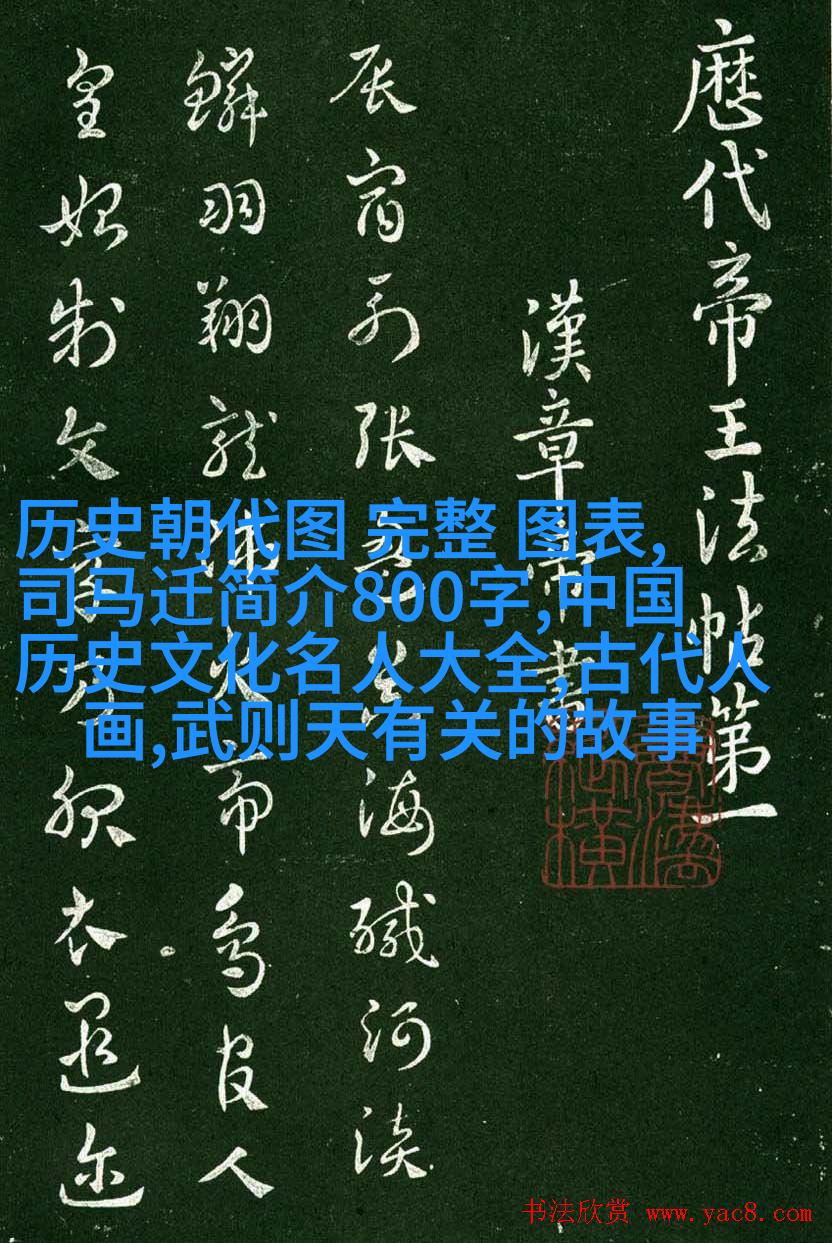 歷代帝王法帖第一
漢章帝書
辰宿列張海鹹河淡
鱗羽翔龍師火帝鳥官人
皇始制文字乃服衣遐迩
历史朝代图 完整 图表,
司马迁简介800字,中国
历史文化名人大全,古代人
画,武则天有关的故事
书法欣赏 www.yac8.com